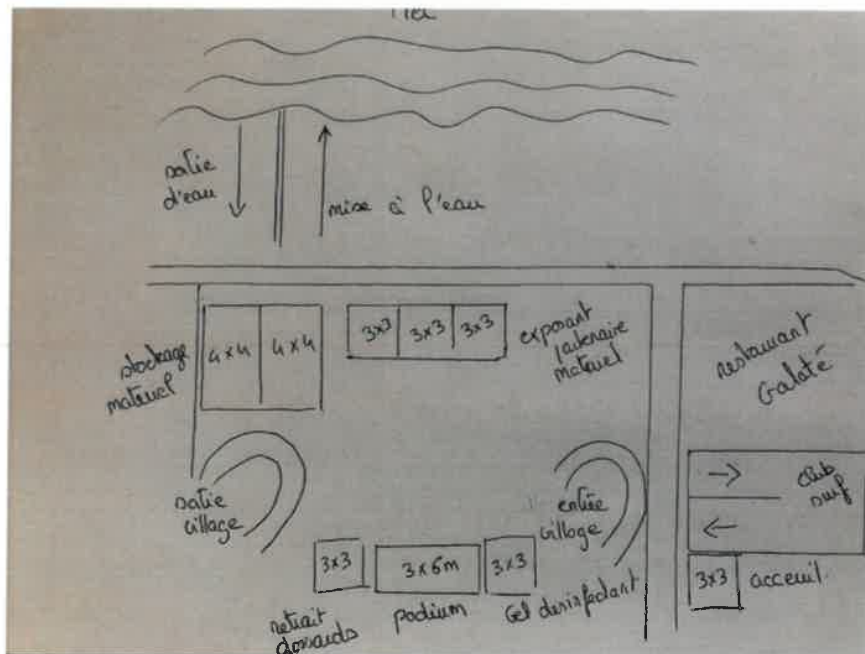 sortie
d'eau
mise à l'eau
stockage
materiel
4x4
4x4
3x3
3x3
3x3
exposant
partenaire
materiel
restaurant
Galaté
sortie
village
entrée
village
club
surf
3x3
3x6m
3x3
retrait
dossards
podium
Gel desinfectant
3x3
acceuil.